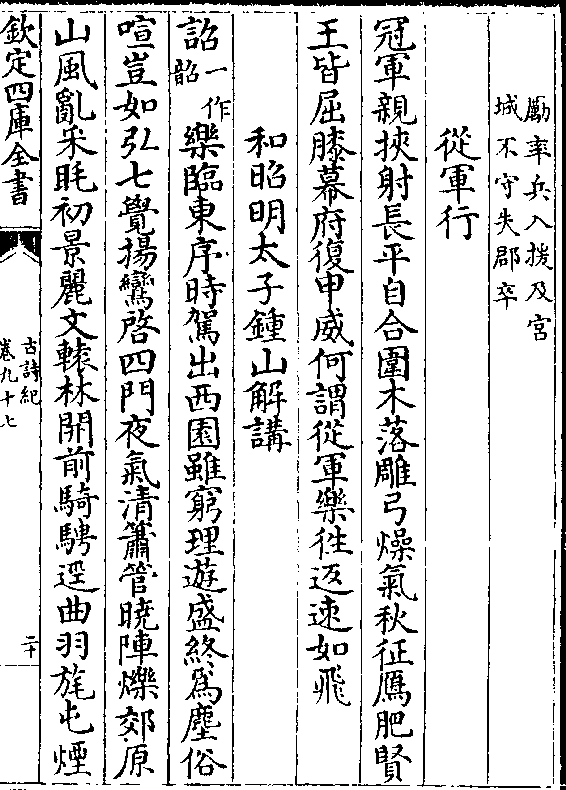 勵率兵入援及宮
城不守失郡卒
從軍行
冠軍親挾射長平自合圍木落雕弓燥氣秋征鴈肥賢
王皆屈膝幕府復申威何謂從軍樂徃返速如飛
和昭明太子鍾山解講
詔一作韶樂臨東序時駕出西園雖窮理遊盛終爲塵俗
喧豈如弘七覺揚鸞啓四門夜氣清簫管曉陣爍郊原
山風亂采眊初景麗文轅林開前騎騁逕曲羽旄屯煙
欽定四庫全書
古詩紀
卷九十七
二十